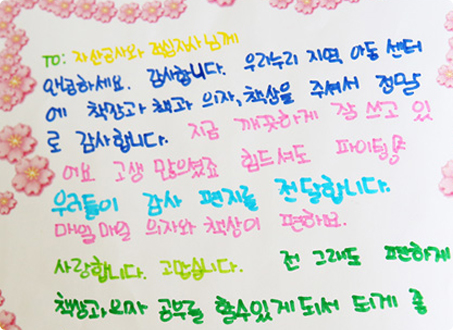 TO: 자산공사와 적십자사 님께
안녕하세요. 감사합니다. 우리누리 지역 아동 센터
에 책장과 책과 의자, 책상을 주셔서 정말
로 감사합니다. 지금 깨끗하게 잘 쓰고 있
어요 고생 많으셨죠 힘드셔도 파이팅
우리들이 감사 편지를 전달합니다.
매일매일 의자와 책상이 편하보.
사랑합니다. 고맙습니다. 전 그래도 편하게
책상과 의자 공부를 할수있게 되서 되게 좋